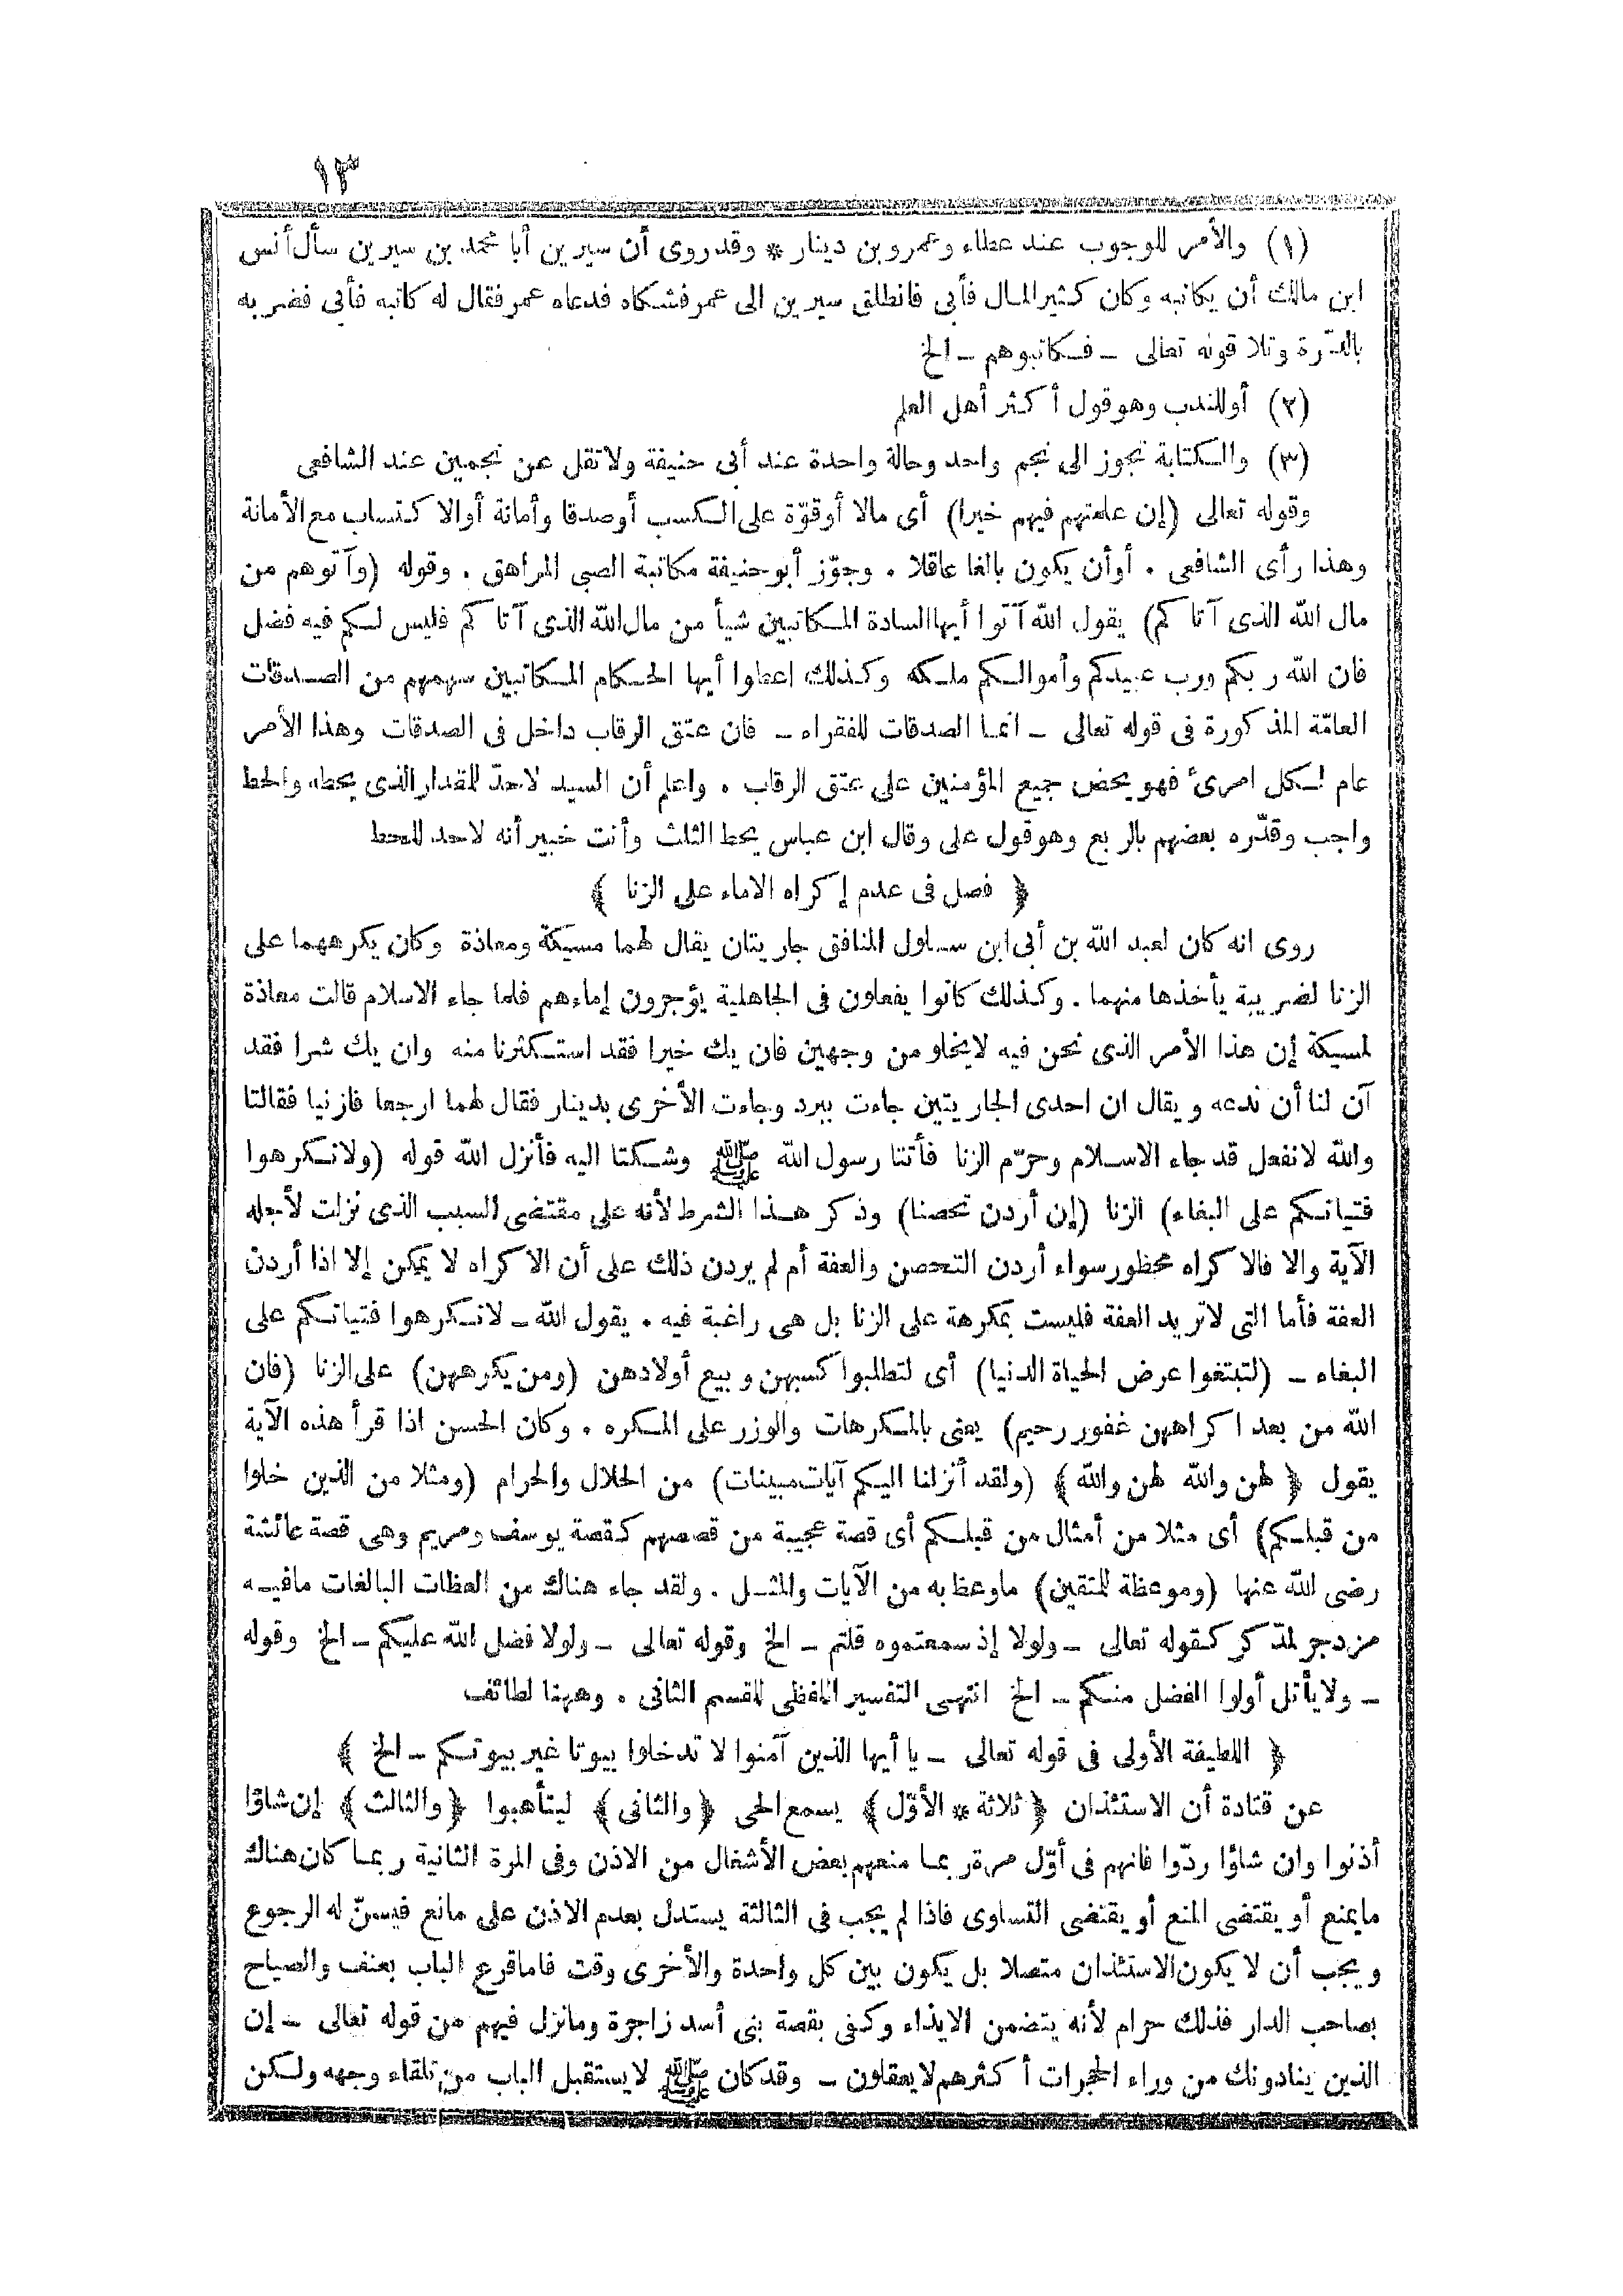 ١٣
(١) والأمر للوجوب عند عطاء وعمرو بن دينار * وقد روى أن سيرين أبا محمد بن سيرين سأل أنس
ابن مالك أن يكاتبه وكان كثير المال فأبى فانطلق سيرين الى عمر فشكاه فدعاه عمر فقال له كاتبه فأبى فضربه
بالدّرة وتلا قوله تعالى ـ فكاتبوهم ـ الخ
(٢) أو للندب وهو قول أكثر أهل العلم
(٣) والكتابة تجوز الى نجم واحد وحالة واحدة عند أبى حنيفة ولا تقل عن نجمين عند الشافعى
وقوله تعالى (إن علمتهم فيهم خيرا) أى مالا أو قوّة على الكسب أو صدقا وأمانة أو الاكتساب مع الأمانة
وهذا رأى الشافعى . أو أن يكون بالغا عاقلا . وجوّز أبو حنيفة مكاتبة الصبى المراهق . وقوله (وآتوهم من
مال الله الذى آتاكم) يقول الله آتوا أيها السادة المكاتبين شيأ من مال الله الذى آتاكم فليس لكم فيه فضل
فان الله ربكم ورب عبيدكم وأموالكم ملكه وكذلك اعطوا أيها الحكام المكاتبين سهمهم من الصدقات
العامّة المذكورة فى قوله تعالى ـ انما الصدقات للفقراء ـ فان عتق الرقاب داخل فى الصدقات وهذا الأمر
عام لكل امرئ فهو يحض جميع المؤمنين على عتق الرقاب . واعلم أن السيد لاحدّ للمقدار الذى يحطه والحط
واجب وقدّره بعضهم بالربع وهو قول على وقال ابن عباس يحط الثلث وأنت خبير أنه لاحد للحط
﴿ فصل فى عدم إكراه الاماء على الزنا ﴾
روى انه كان لعبد الله بن أبى ابن سلول المنافق جاريتان يقال لهما مسيكة ومعاذة وكان يكرههما على
الزنا لضريبة يأخذها منهما . وكذلك كانوا يفعلون فى الجاهلية يؤجرون إماءهم فلما جاء الاسلام قالت معاذة
لمسيكة إن هذا الأمر الذى نحن فيه لايخلو من وجهين فان يك خيرا فقد استكثرنا منه وان يك شرا فقد
آن لنا أن ندعه ويقال ان احدى الجاريتين جاءت ببرد وجاءت الأخرى بدينار فقال لهما ارجعا فازنيا فقالتا
والله لانفعل قد جاء الاسلام وحرّم الزنا فأتتا رسول الله ﷺ وشكتا اليه فأنزل الله قوله (ولاتكرهوا
فتياتكم على البغاء) الزنا (إن أردن تحصنا) وذكر هذا الشرط لأنه على مقتضى السبب الذى نزلت لأجله
الآية والا فالاكراه محظور سواء أردن التحصن والعفة أم لم يردن ذلك على أن الاكراه لا يمكن إلا اذا أردن
العفة فأما التى لاتريد العفة فليست بمكرهة على الزنا بل هى راغبة فيه . يقول الله ـ لاتكرهوا فتياتكم على
البغاء ـ (لتبتغوا عرض الحياة الدنيا) أى لتطلبوا كسبهن وبيع أولادهن (ومن يكرههن) على الزنا (فان
الله من بعد اكراههن غفور رحيم) يعنى بالمكرهات والوزر على المكره . وكان الحسن اذا قرأ هذه الآية
يقول ﴿ لهن والله لهن والله ﴾ (ولقد أنزلنا اليكم آيات مبينات) من الحلال والحرام (ومثلا من الذين خلوا
من قبلكم) أى مثلا من أمثال من قبلكم أى قصة عجيبة من قصصهم كقصة يوسف ومريم وهى قصة عائشة
رضى الله عنها (وموعظة للمتقين) ماوعظ به من الآيات والمثل . ولقد جاء هناك من العظات البالغات مافيه
مزدجر لمدّكر كقوله تعالى ـ ولولا إذ سمعتموه قلتم ـ الخ وقوله تعالى ـ ولولا فضل الله عليكم ـ الخ وقوله
ـ ولا يأتل أولوا الفضل منكم ـ الخ انتهى التفسير اللفظى للقسم الثانى . وههنا لطائف
﴿ اللطيفة الأولى فى قوله تعالى ـ يا أيها الذين آمنوا لا تدخلوا بيوتا غير بيوتكم ـ الخ ﴾
عن قتادة أن الاستئذان ﴿ ثلاثة * الأوّل ﴾ يسمع الحى ﴿ والثانى ﴾ ليتأهبوا ﴿ والثالث ﴾ إن شاؤا
أذنوا وان شاؤا ردّوا فانهم فى أوّل مرة ربما منعهم بعض الأشغال من الاذن وفى المرة الثانية ربما كان هناك
مايمنع أو يقتضى المنع أو يقتضى التساوى فاذا لم يجب فى الثالثة يستدل بعدم الاذن على مانع فيسنّ له الرجوع
ويجب أن لا يكون الاستئذان متصلا بل يكون بين كل واحدة والأخرى وقت فاما قرع الباب بعنف والصياح
بصاحب الدار فذلك حرام لأنه يتضمن الايذاء وكفى بقصة بنى أسد زاجرة ومانزل فيهم من قوله تعالى ـ إن
الذين ينادونك من وراء الحجرات أكثرهم لايعقلون ـ وقد كان ﷺ لايستقبل الباب من تلقاء وجهه ولكن